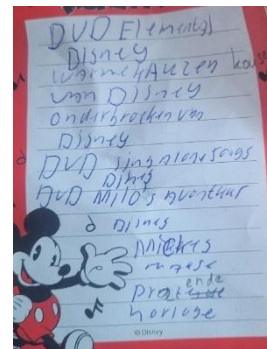 DVD Elemental
Disney
warme HAUzen kouse
van Disney
onderbroeken van
Disney
DVD singalone songs
Disney
DVD Milo's Avontuur
Disney
Mickes
mouse
pratende
horloge
© Disney